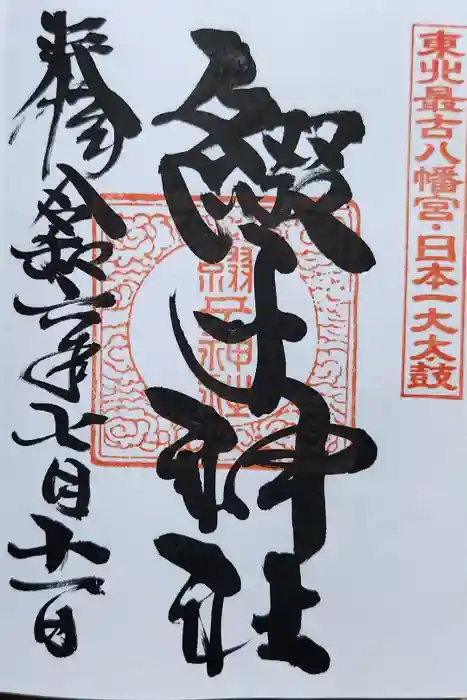 東北最古八幡宮・日本一大太鼓
綴子神社
綴子神社
奉拝 令和六年七月十一日